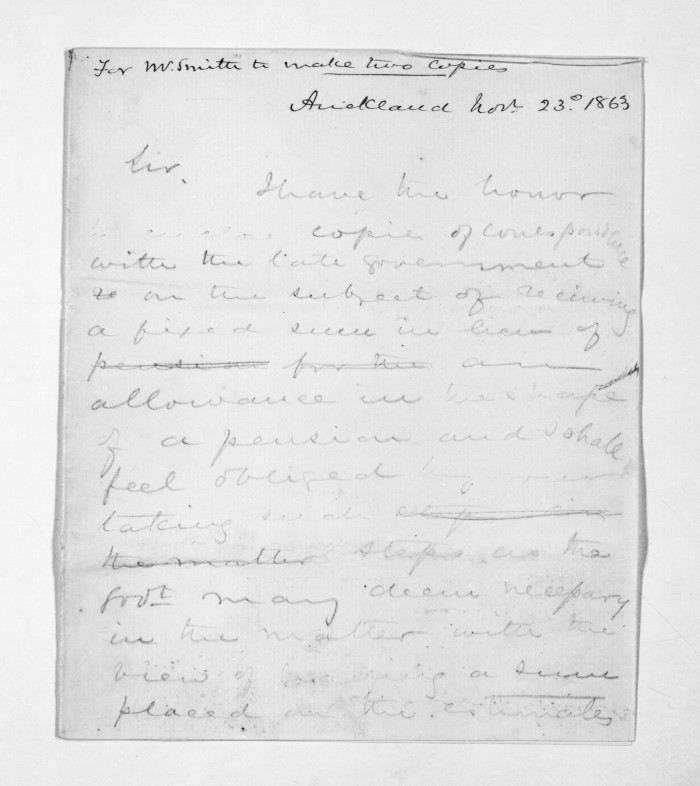 For Mr Smith to make two copies
Auckland Novr 23d 1863
Sir,
I have the honor
to enclose copies of correspondence
with the late government
to on the subject of receiving
a fixed sum in lieu of
pension for the an
allowance in the shape
of a pension and I shall
feel obliged by your
taking such steps in
the matter steps as the
Govt may deem necessary
in the matter with the
view of having a sum
placed on the estimates